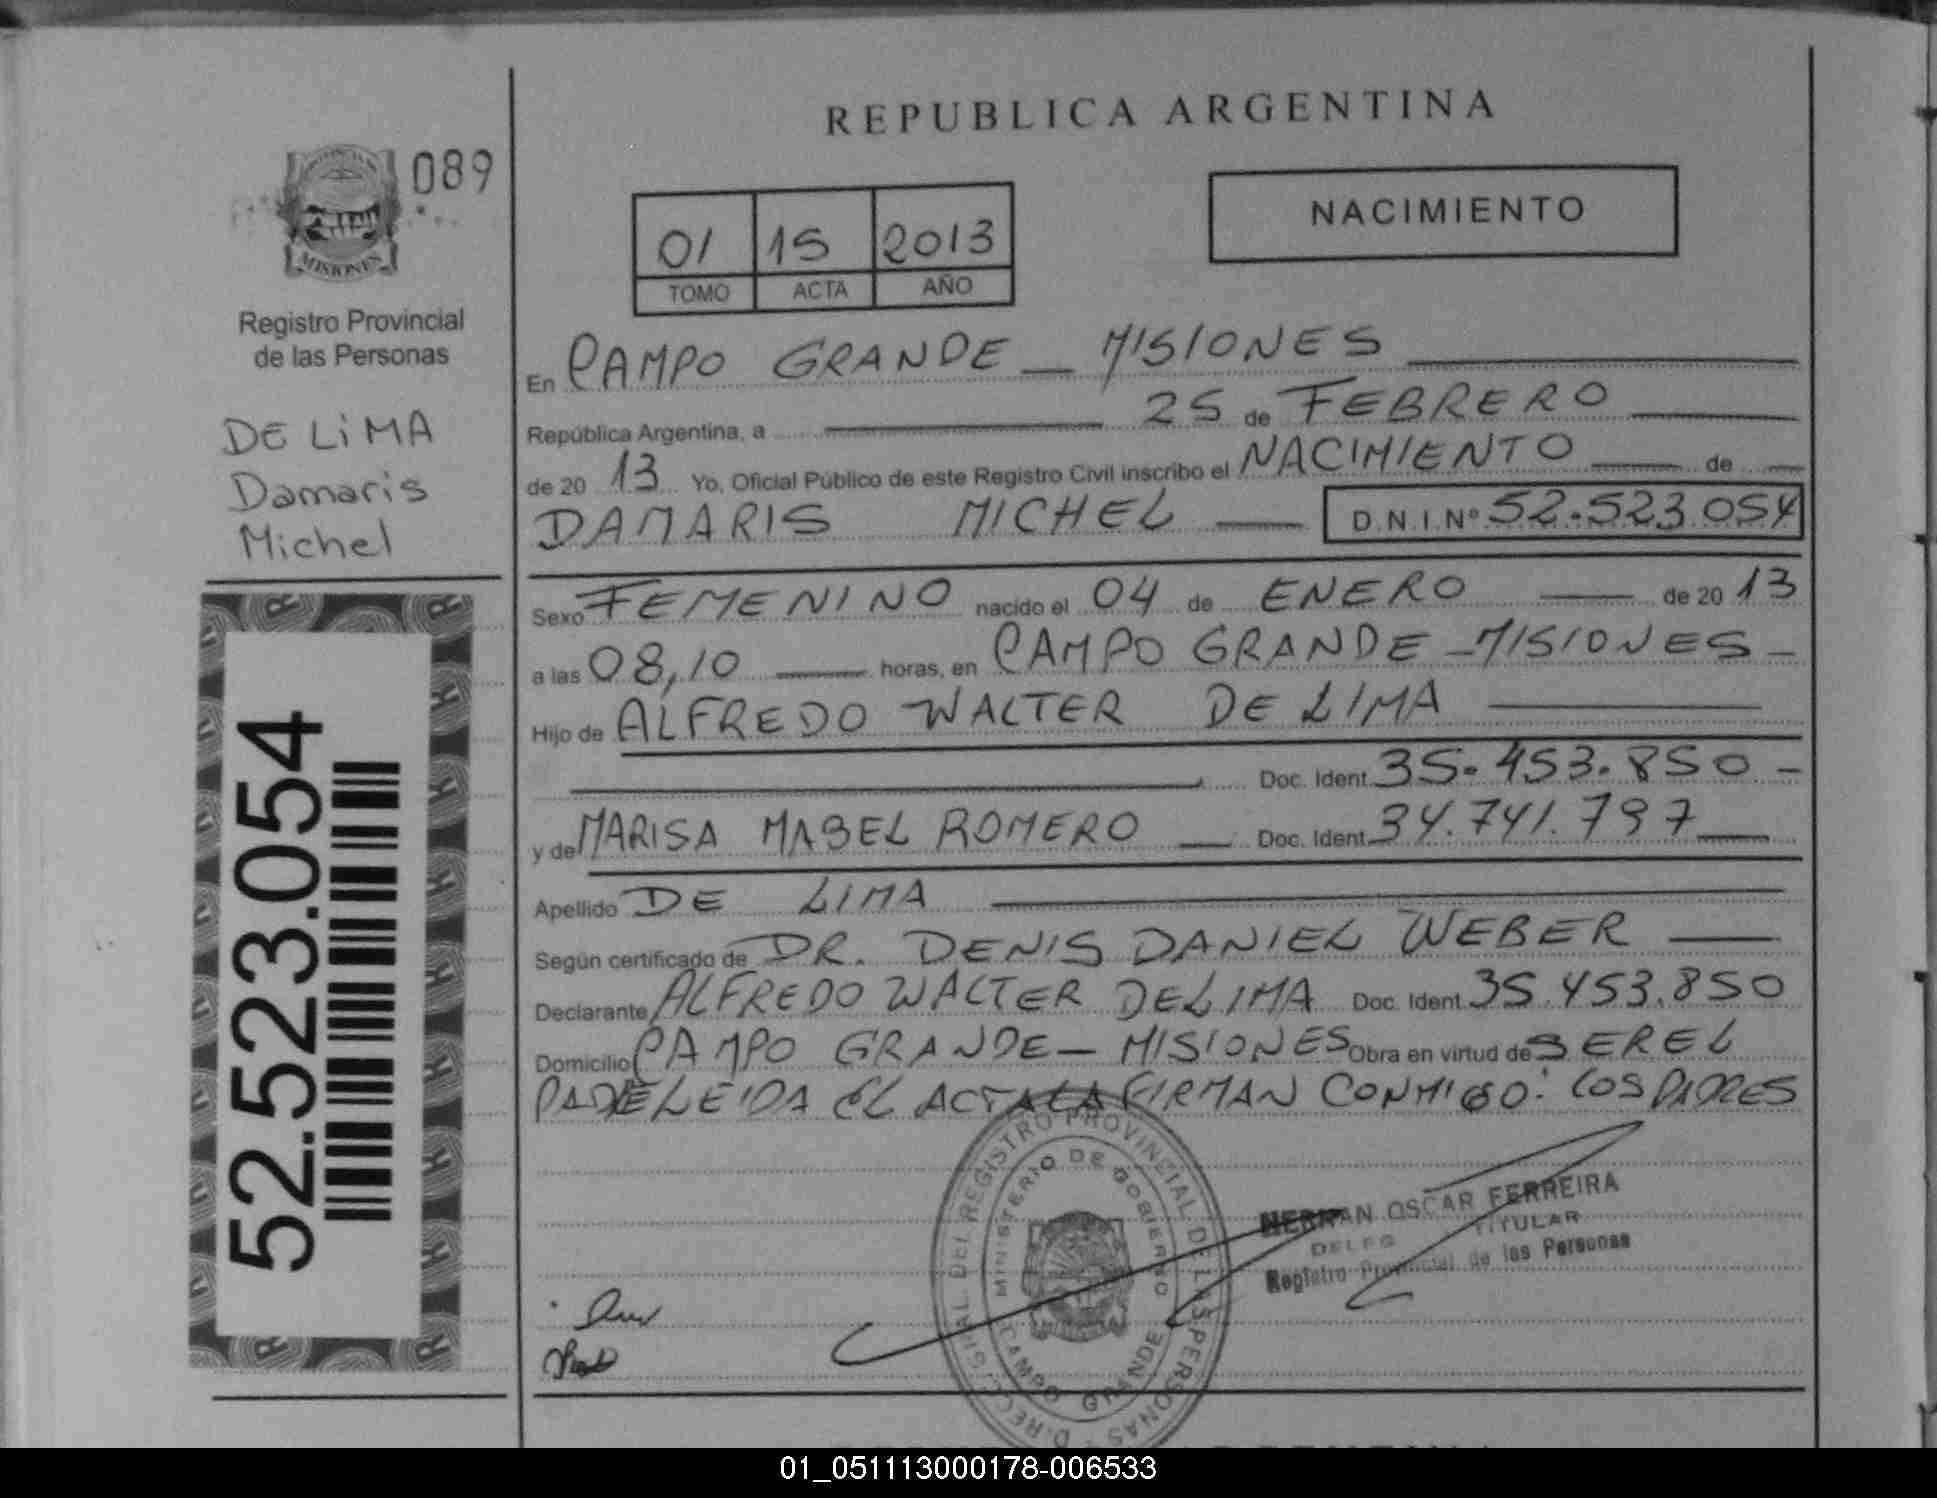 REPUBLICA ARGENTINA
089
MISIONES
Registro Provincial
de las Personas
DE LiMA
Damaris
Michel
52.523.054
NACIMIENTO
01 15 2013
TOMO ACTA AÑO
En CAMPO GRANDE — MISIONES
República Argentina, a 25 de FEBRERO
de 20 13 Yo, Oficial Público de este Registro Civil inscribo el NACIMIENTO de
DAMARIS MICHEL D.N.I.Nº 52.523.054
Sexo FEMENINO nacido el 04 de ENERO de 20 13
a las 08,10 horas, en CAMPO GRANDE - MISIONES -
Hijo de ALFREDO WALTER DE LIMA
Doc. Ident. 35.453.850 -
y de MARISA MABEL ROMERO Doc. Ident. 34.741.797
Apellido DE LIMA
Según certificado de DR. DENIS DANIEL WEBER
Declarante ALFREDO WALTER DE LIMA Doc. Ident. 35.453.850
Domicilio CAMPO GRANDE — MISIONES Obra en virtud de SER EL
PADRE LEIDA EL ACTA LA FIRMAN CONMIGO: LOS PADRES
DEL REGISTRO PROVINCIAL DE LAS PERSONAS
MINISTERIO DE GOBIERNO
CAMPO GRANDE
HERNAN OSCAR FERREIRA
TITULAR
Registro Provincial de las Personas
01_051113000178-006533